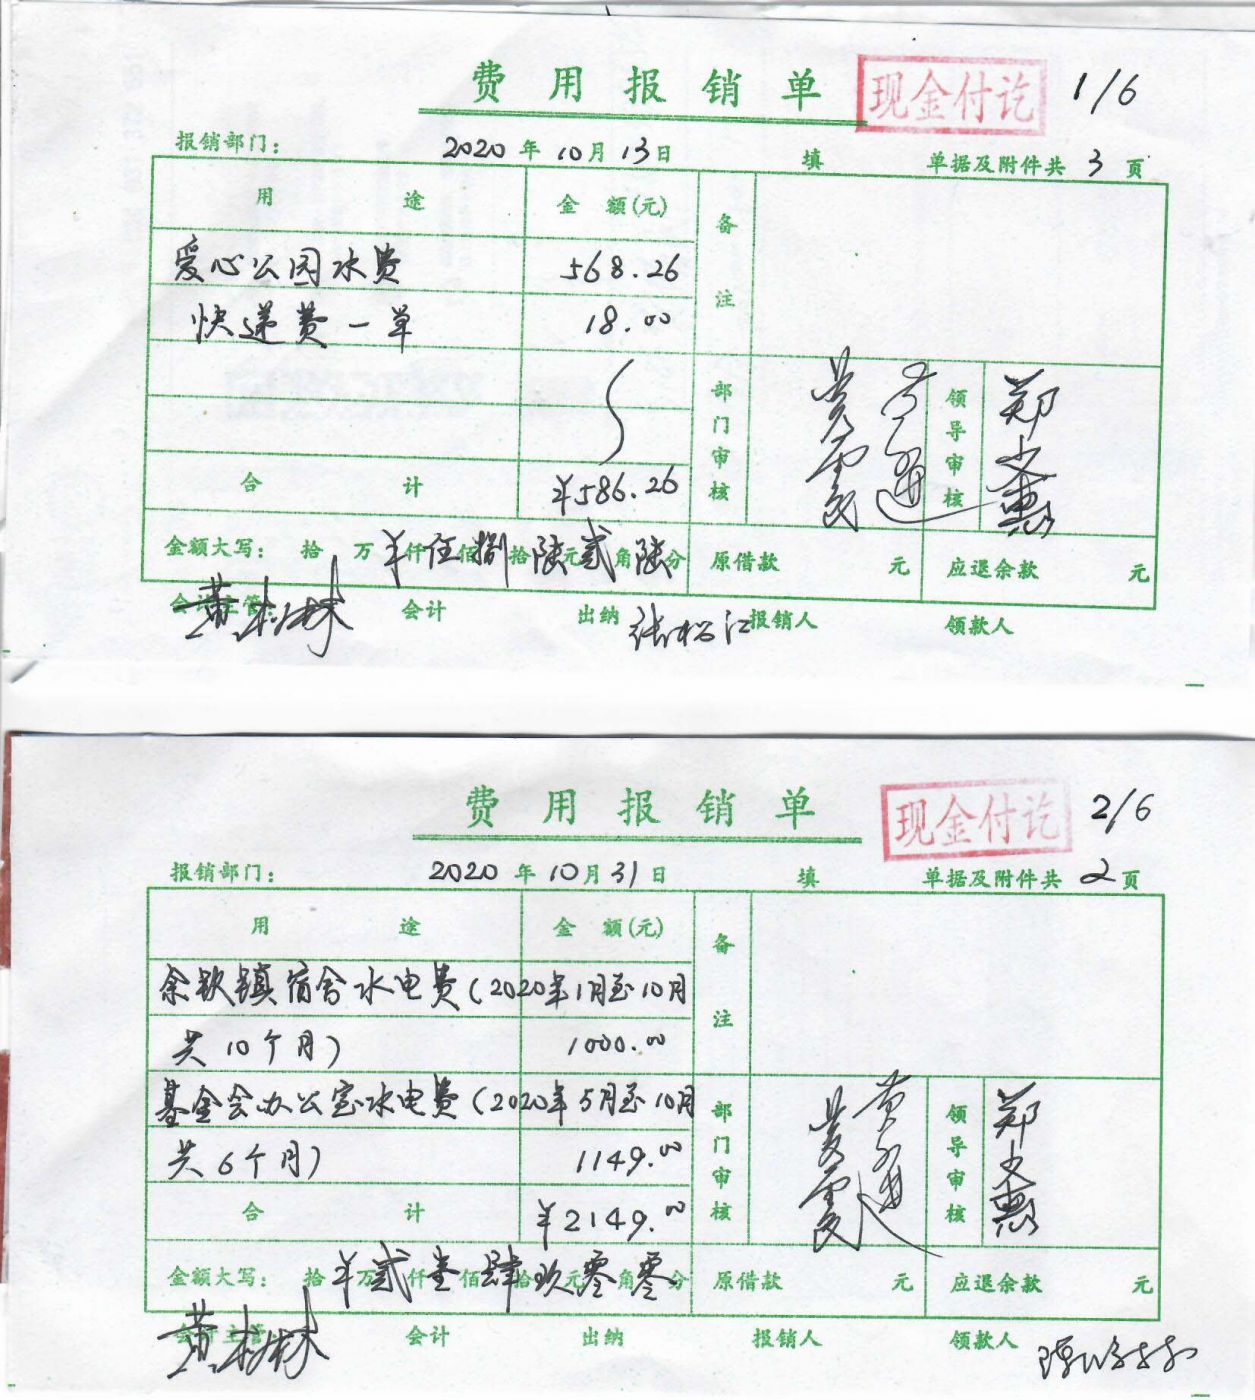 费用报销单 现金付讫 1/6
报销部门： 2020年10月13日 填 单据及附件共3页
用途 金额(元) 备注
爱心公园水费 568.26
快递费一单 18.00
部门审核 领导审核 郑文惠
合计 ¥586.26
金额大写： 拾万¥仟伍佰捌拾陆元贰角陆分 原借款 元 应退余款 元
会计主管： 黄树林 会计 出纳 张松江 报销人 领款人
费用报销单 现金付讫 2/6
报销部门： 2020年10月31日 填 单据及附件共2页
用途 金额(元) 备注
余钦镇宿舍水电费(2020年1月至10月
共10个月) 1000.00
基金会办公室水电费(2020年5月至10月
共6个月) 1149.00
部门审核 领导审核 郑文惠
合计 ¥2149.00
金额大写： 拾¥万贰仟壹佰肆拾玖元零角零分 原借款 元 应退余款 元
会计主管： 黄树林 会计 出纳 报销人 领款人